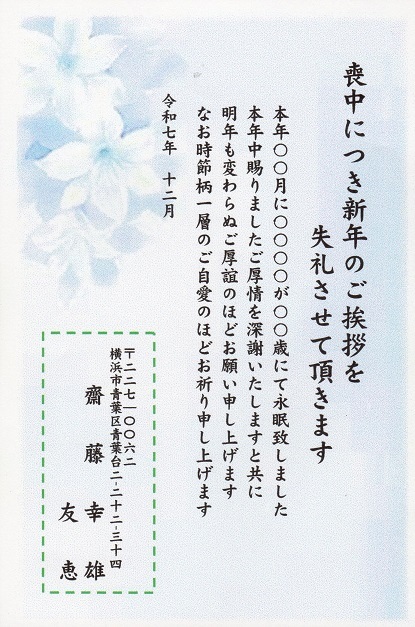 喪中につき新年のご挨拶を
失礼させて頂きます
本年〇〇月に〇〇〇〇が〇〇歳にて永眠致しました
本年中賜りましたご厚情を深謝いたしますと共に
明年も変わらぬご厚誼のほどお願い申し上げます
なお時節柄一層のご自愛のほどお祈り申し上げます
令和七年　十二月
〒二二七ー〇〇六二
横浜市青葉区青葉台二-二十二-三十四
齋藤　幸雄
友恵